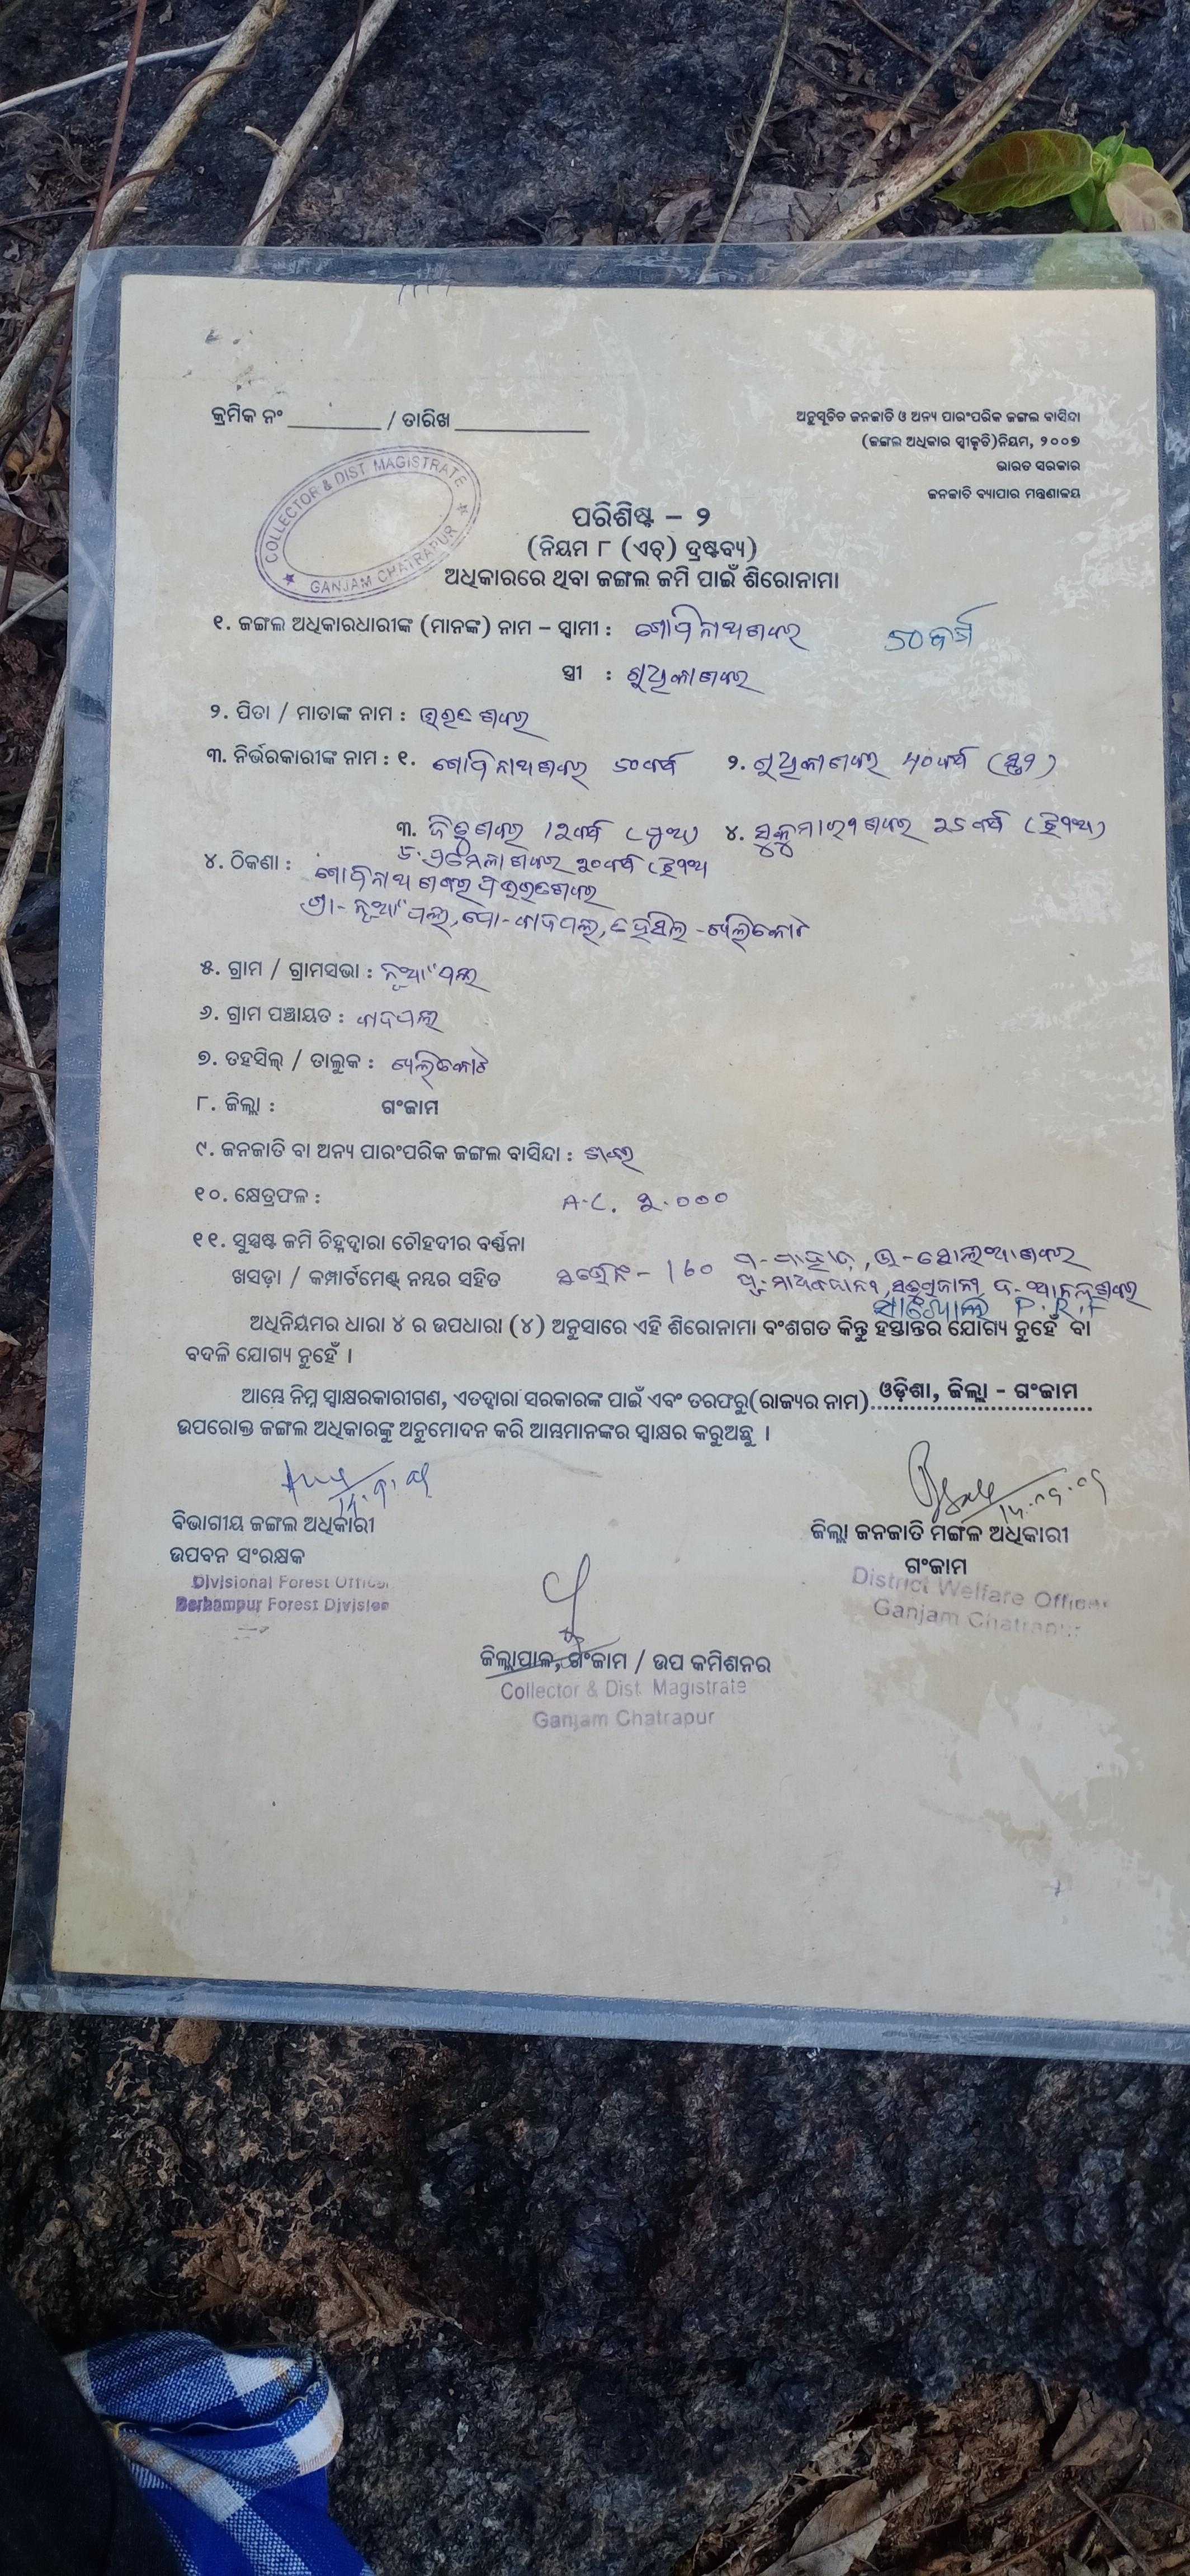 କ୍ରମିକ ନଂ / ତାରିଖ
ଅନୁସୂଚିତ ଜନଜାତି ଓ ଅନ୍ୟ ପାରଂପରିକ ଜଙ୍ଗଲ ବାସିନ୍ଦା
(ଜଙ୍ଗଲ ଅଧିକାର ସ୍ୱୀକୃତି)ନିୟମ, ୨୦୦୭
ଭାରତ ସରକାର
ଜନଜାତି ବ୍ୟାପାର ମନ୍ତ୍ରଣାଳୟ
COLLECTOR & DIST. MAGISTRATE
GANJAM CHATRAPUR
ପରିଶିଷ୍ଟ – ୨
(ନିୟମ ୮ (ଏଚ୍) ଦ୍ରଷ୍ଟବ୍ୟ)
ଅଧିକାରରେ ଥିବା ଜଙ୍ଗଲ ଜମି ପାଇଁ ଶିରୋନାମା
୧. ଜଙ୍ଗଲ ଅଧିକାରଧାରୀଙ୍କ (ମାନଙ୍କ) ନାମ – ସ୍ୱାମୀ : ଗୋପିନାଥ ଶବର ୫୦ ବର୍ଷ
ସ୍ତ୍ରୀ :
୨. ପିତା / ମାତାଙ୍କ ନାମ : ଭରତ ଶବର
୩. ନିର୍ଭରକାରୀଙ୍କ ନାମ : ୧. ଗୋପିନାଥ ଶବର ୫୦ ବର୍ଷ ୨. ଶବର ୪୦ ବର୍ଷ (ସ୍ତ୍ରୀ)
୩. ଶବର ୧୨ ବର୍ଷ (ପୁଅ) ୪. ସୁକୁମାରୀ ଶବର ୨୫ ବର୍ଷ (ଝିଅ)
ଶବର ୨୦ ବର୍ଷ (ଝିଅ
୪. ଠିକଣା : ଗୋପିନାଥ ଶବର ପି ଭରତ ଶବର
ଗ୍ରା- ନୂଆଁପଲ୍ଲୀ, ପୋ- ତହସିଲ - ଖଲିକୋଟ
୫. ଗ୍ରାମ / ଗ୍ରାମସଭା : ନୂଆଁପଲ୍ଲୀ
୬. ଗ୍ରାମ ପଞ୍ଚାୟତ :
୭. ତହସିଲ୍ / ତାଲୁକ : ଖଲିକୋଟ
୮. ଜିଲ୍ଲା : ଗଂଜାମ
୯. ଜନଜାତି ବା ଅନ୍ୟ ପାରଂପରିକ ଜଙ୍ଗଲ ବାସିନ୍ଦା : ଶବର
୧୦. କ୍ଷେତ୍ରଫଳ : A.C. ୨.୦୦୦
୧୧. ସୁସ୍ପଷ୍ଟ ଜମି ଚିହ୍ନଦ୍ୱାରା ଚୌହଦୀର ବର୍ଣ୍ଣନା
ଖସଡ଼ା / କମ୍ପାର୍ଟମେଣ୍ଟ ନମ୍ବର ସହିତ ପ୍ଲଟ ନଂ - 160 ପ- ପାହାଡ଼, ଉ- ଶବର
ଦ- ଆନନ୍ଦ ଶବର
P.R.F
ଅଧିନିୟମର ଧାରା ୪ ର ଉପଧାରା (୪) ଅନୁସାରେ ଏହି ଶିରୋନାମା ବଂଶଗତ କିନ୍ତୁ ହସ୍ତାନ୍ତର ଯୋଗ୍ୟ ନୁହେଁ ବା
ବଦଳି ଯୋଗ୍ୟ ନୁହେଁ ।
ଆମ୍ଭେ ନିମ୍ନ ସ୍ୱାକ୍ଷରକାରୀଗଣ, ଏତଦ୍ୱାରା ସରକାରଙ୍କ ପାଇଁ ଏବଂ ତରଫରୁ(ରାଜ୍ୟର ନାମ) ଓଡ଼ିଶା, ଜିଲ୍ଲା - ଗଂଜାମ
ଉପରୋକ୍ତ ଜଙ୍ଗଲ ଅଧିକାରଙ୍କୁ ଅନୁମୋଦନ କରି ଆମ୍ଭମାନଙ୍କର ସ୍ୱାକ୍ଷର କରୁଅଛୁ ।
ବିଭାଗୀୟ ଜଙ୍ଗଲ ଅଧିକାରୀ
ଉପବନ ସଂରକ୍ଷକ
Divisional Forest Officer
Berhampur Forest Division
ଜିଲ୍ଲା ଜନଜାତି ମଙ୍ଗଳ ଅଧିକାରୀ
ଗଂଜାମ
District Welfare Officer
Ganjam Chatrapur
ଜିଲ୍ଲାପାଳ, ଗଂଜାମ / ଉପ କମିଶନର
Collector & Dist. Magistrate
Ganjam Chatrapur